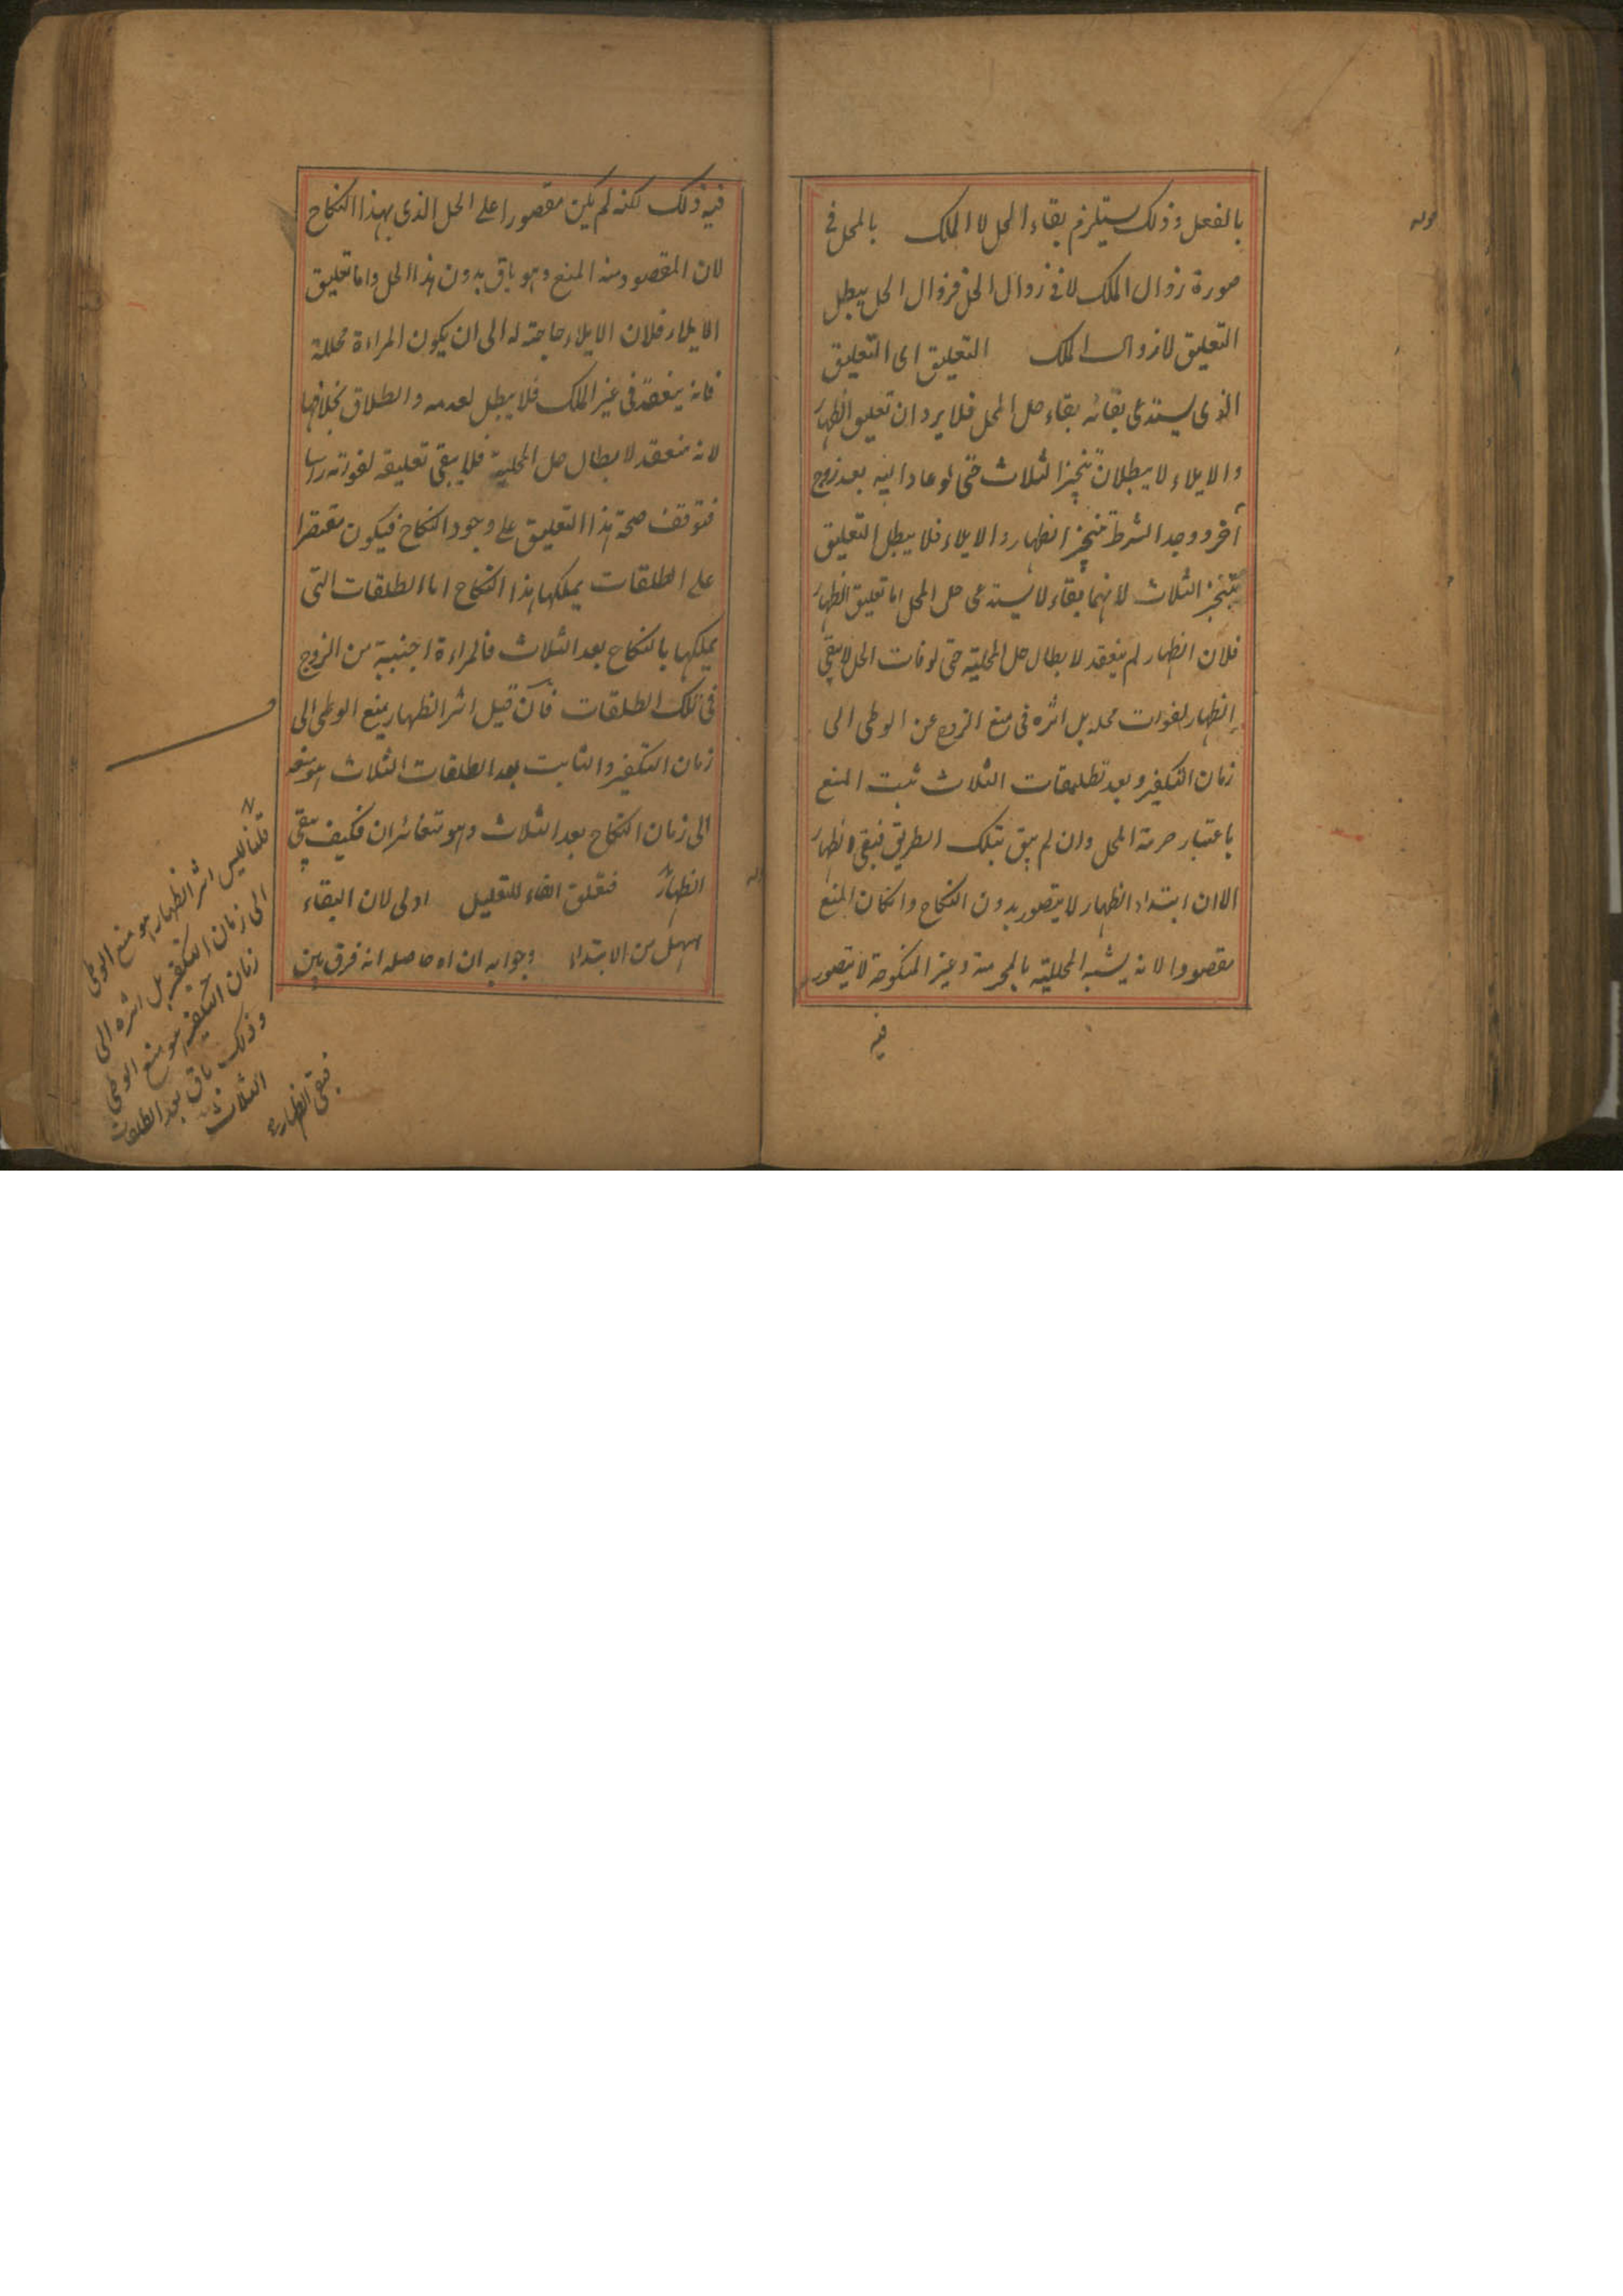 بالفعل وذلك يستلزم بقاء المحل لا الملك بالمحل فى
صورة زوال الملك لا فى زوال الحل فزوال الحل يبطل
التعليق لا زوال الملك التعليق اى التعليق
الذى يستدعى بقائه بقاء حل المحل فلا يرد ان تعليق الظهار
والايلاء لا يبطلان بتنجيز الثلاث حتى لو عاد اليه بعد زوج
آخر ووجد الشرط تنجيز الظهار والايلاء فلا يبطل التعليق
بتنجيز الثلاث لانهما بقاء لا يستدعى حل المحل اما تعليق الظهار
فلان الظهار لم ينعقد لابطال حل المحلية حتى لو فات الحل لا يبقى
الظهار لفوات محله بل اثره فى منع الزوج عن الوطى الى
زمان التكفير وبعد تطليقات الثلاث ثبت المنع
باعتبار حرمة المحل وان لم يبق بتلك الطريق فبقى الظهار
الا ان ابتداء الظهار لا يتصور بدون النكاح وان كان المنع
مقصودا لانه يشبه المحللية بالمحرمة وغير المنكوحة لا يتصور
فيه
فيه ذلك لكنه لم يكن مقصورا على الحل الذى بهذا النكاح
لان المقصود منه المنع وهو باق بدون هذا الحل واما تعليق
الايلاء فلان الايلاء حاجته له الى ان يكون المراءة محللة
فانه ينعقد فى غير الملك فلا يبطل لعدمه والطلاق بخلافها
لانه منعقد لابطال حل المحلية فلا يبقى تعليقه لفواته راسا
فتوقف صحة هذا التعليق على وجود النكاح فيكون مقتصرا
على الطلقات يملكها هذا النكاح اما الطلقات التى
يملكها بالنكاح بعد الثلاث فالمراءة اجنبية من الزوج
فى تلك الطلقات فان قيل اثر الظهار يمنع الوطى الى
زمان التكفير والثابت بعد الطلقات الثلاث هو منعه
الى زمان النكاح بعد الثلاث وهو متغائران فكيف يبقى
الظهار فتعلق الفاء للتعليل اولى لان البقاء
اسهل من الابتداء وجوابه ان اه حاصله انه فرق بين
قلنا ليس اثر الظهار هو منع الوطى
الى زمان التكفير بل اثره الى
زمان التكفير هو منع الوطى
وذلك باق بعد الطلقات
الثلاث
فبقى الظهار
قوله